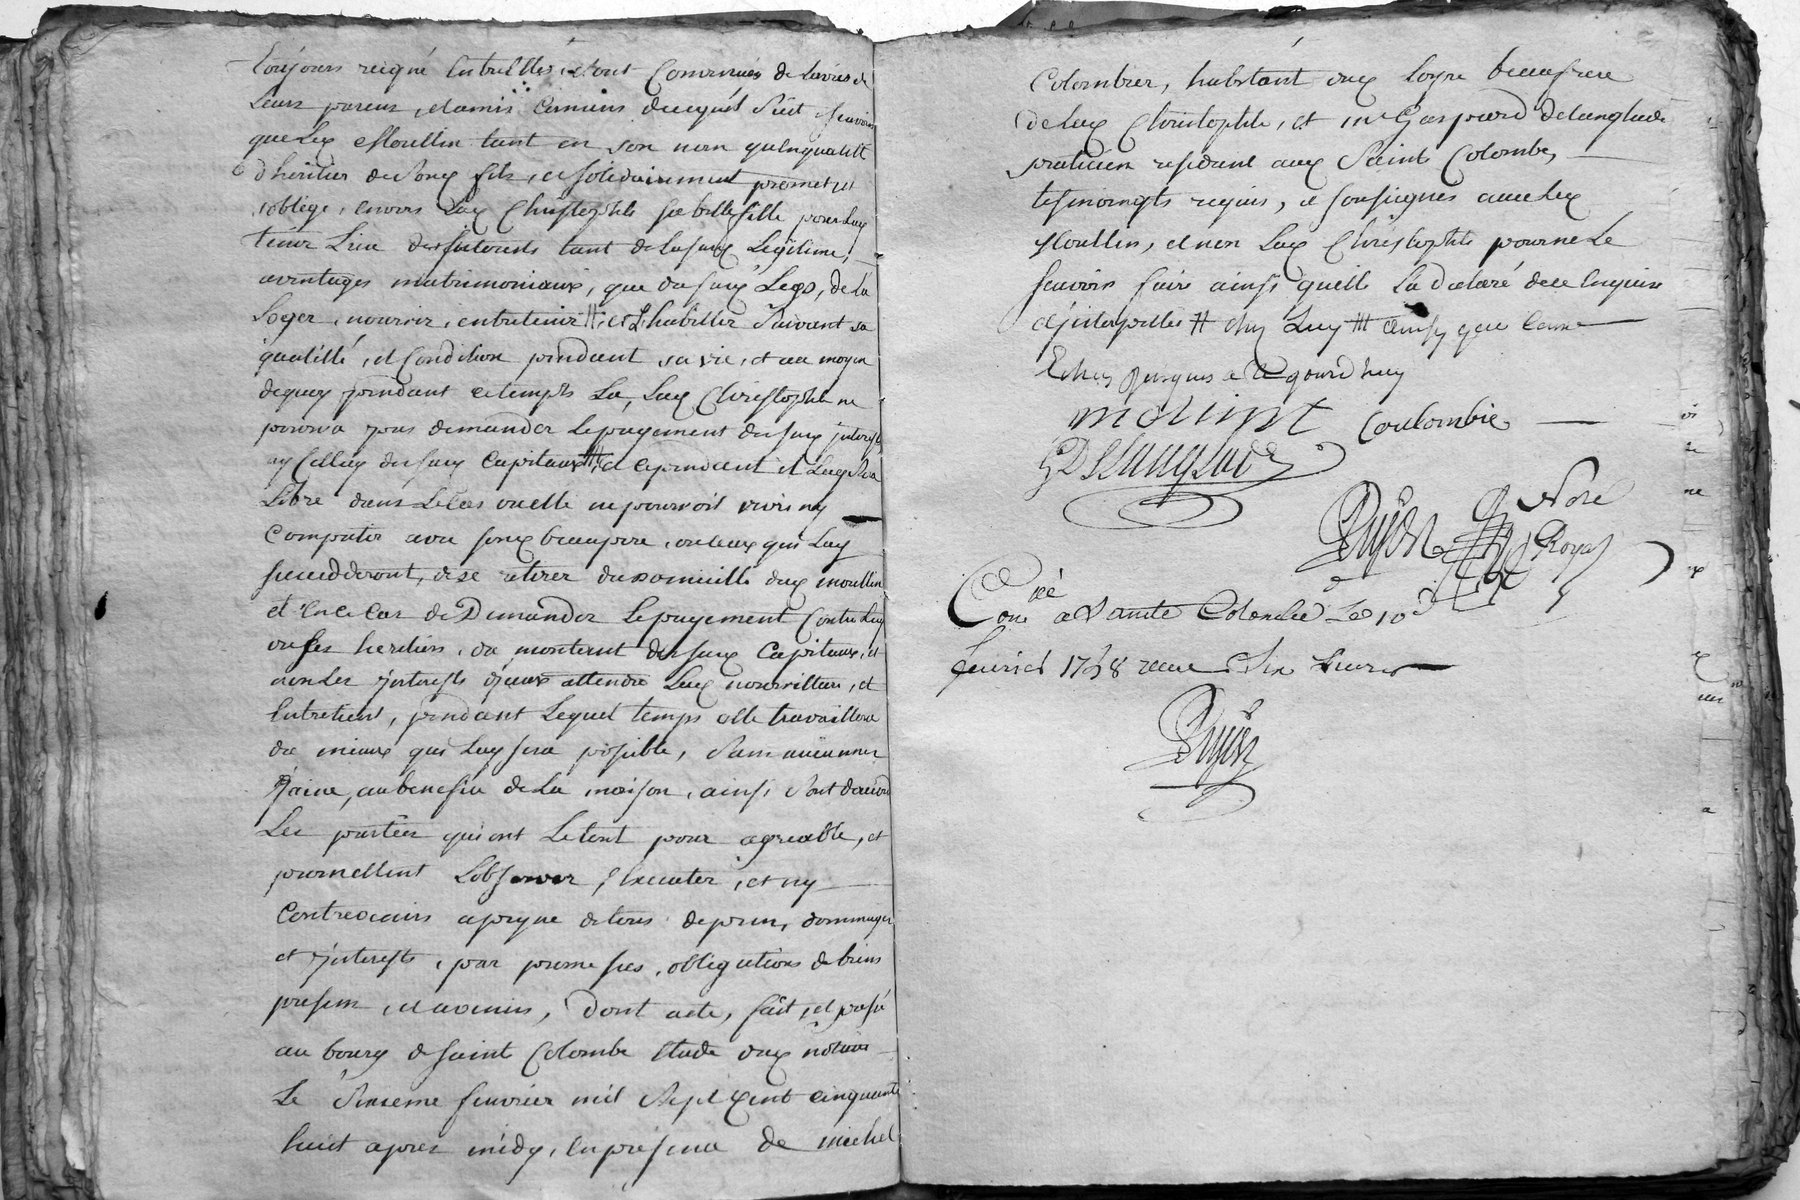 toujours reigné entre elles, et sont convenues de lavis de
leurs parens, et amis communs duquel suit, scavoir
que led Moullin tant en son nom qu'en qualité
d'heritier de sond fils, et solidairement promet et
oblige, envers lad Christophle sa bellefille pour luy
tenir lieu des interests tant de lasusd legitime,
avantages matrimoniaux, que dususd legs, de la
loger, nourrir, entretenir # et l'habiller suivant sa
qualitté, et condition pendant sa vie, et au moyen
dequoy pendant cetemps la, lad Christophle ne
pourra pas demander lepayement desusd interests
ny celluy desusd capitaux # et cependant il luy sera
libre dans lecas ou elle ne pourroit vivre ny
compatir avec sond beaupere, ou ceux qui luy
succedderont, de se retirer du domicille dud Moullin
et en ce cas de demander lepayement contre luy
ou ses heritiers, du montant desusd capitaux, et
interests
entretient, pendant lequel temps elle travaillera
du mieux qui luy sera possible, sans aucunne
, au benefice de la maison, ainsi sont d'accord
les parties qui ont letout pour agreable, et
promettent l'observer, executer, et ny
contrevenir apeyne de tous depens, dommages
et interests, par promesses, obligations de biens
presens, et avenir, dont acte, fait, et passé
au bourg de saint Colombe etude dud notaire
le dixieme fevrier mil sept cent cinquante
huit apres midy, en presence de michel
Colombier, habitant oncle beaufrere
de lad Christophle, et mr Gaspard Delanglade
praticien residant aud Saint Colombe,
tesmoingts requis, et soussignes avec led
Moullin, et non lad Christophle pour ne le
scavoir faire ainsi quelle la declaré de ce enquise
et interpellée # chez luy # ainsy que
jusques a ce jourdhuy
moulint coulombie
G Delanglade
Nore
Royal
Coné a Sainte Colombe le 10e
fevrier 1758 receu six livres